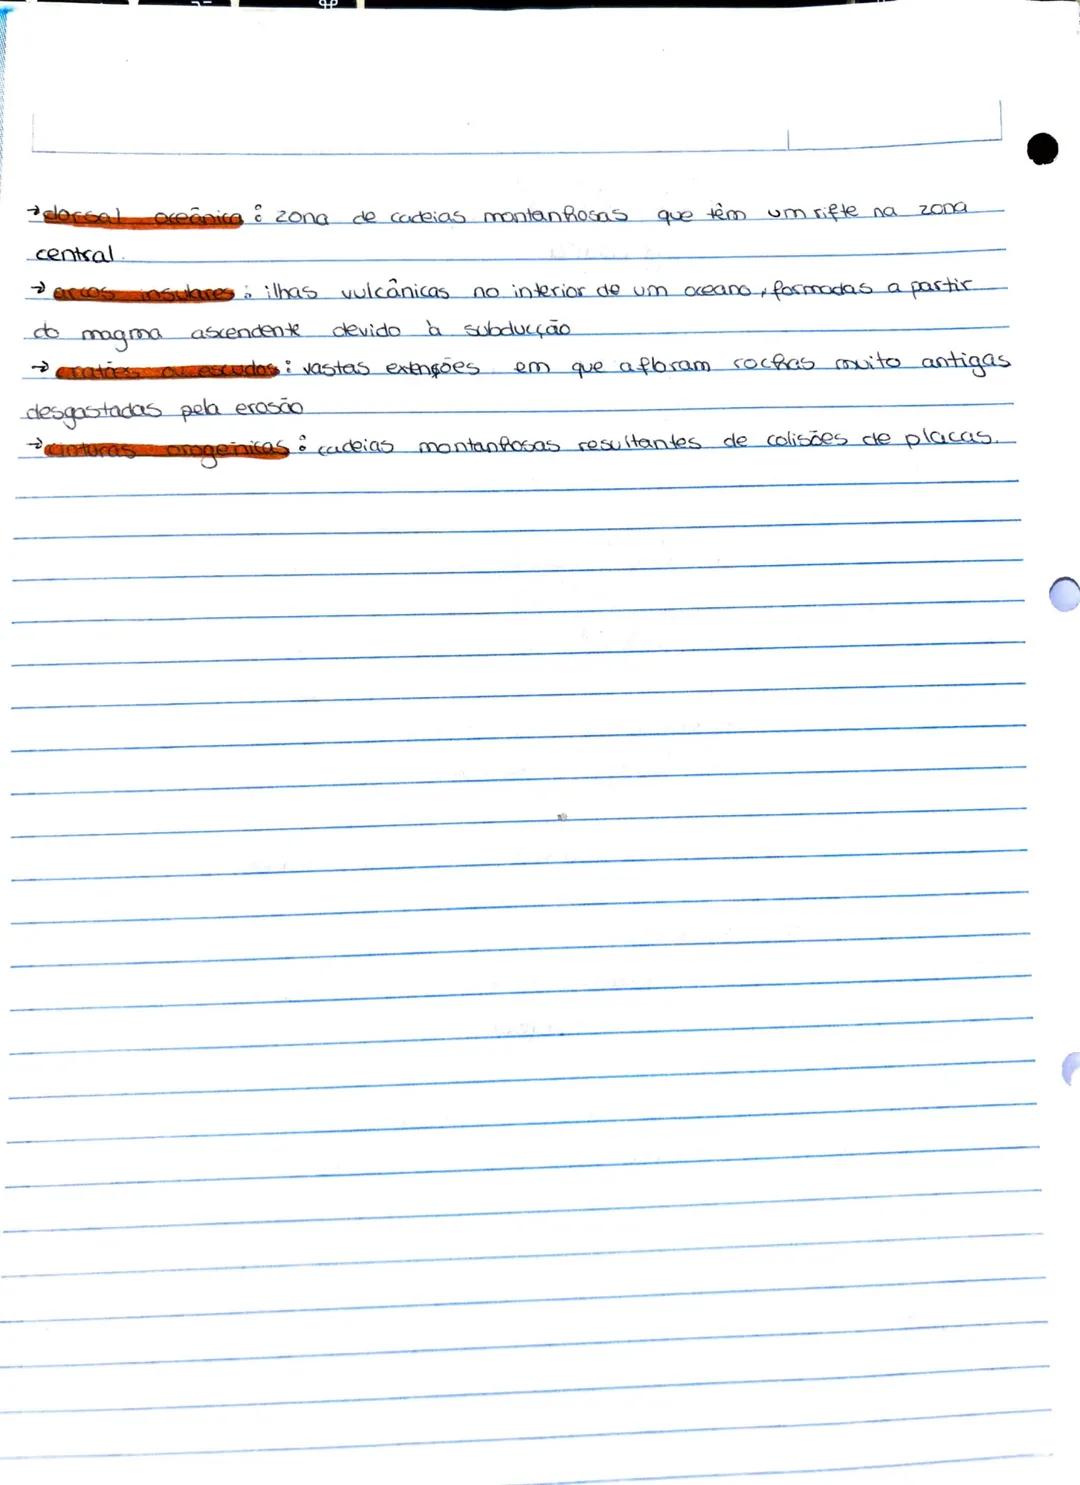 →dorsal oceânica: zona de cadeias montanhosas que têm um rifte na zona
central.
→ arcos insulares: ilhas vulcânicas no interior de um oceano, formadas a partir
do magma ascendente devido à subducção
→ cratões ou escudos: vastas extenções em que afloram rochas muito antigas
desgastadas pela erosão
→ cinturas orogénicas: cadeias montanhosas resultantes de colisões de placas.